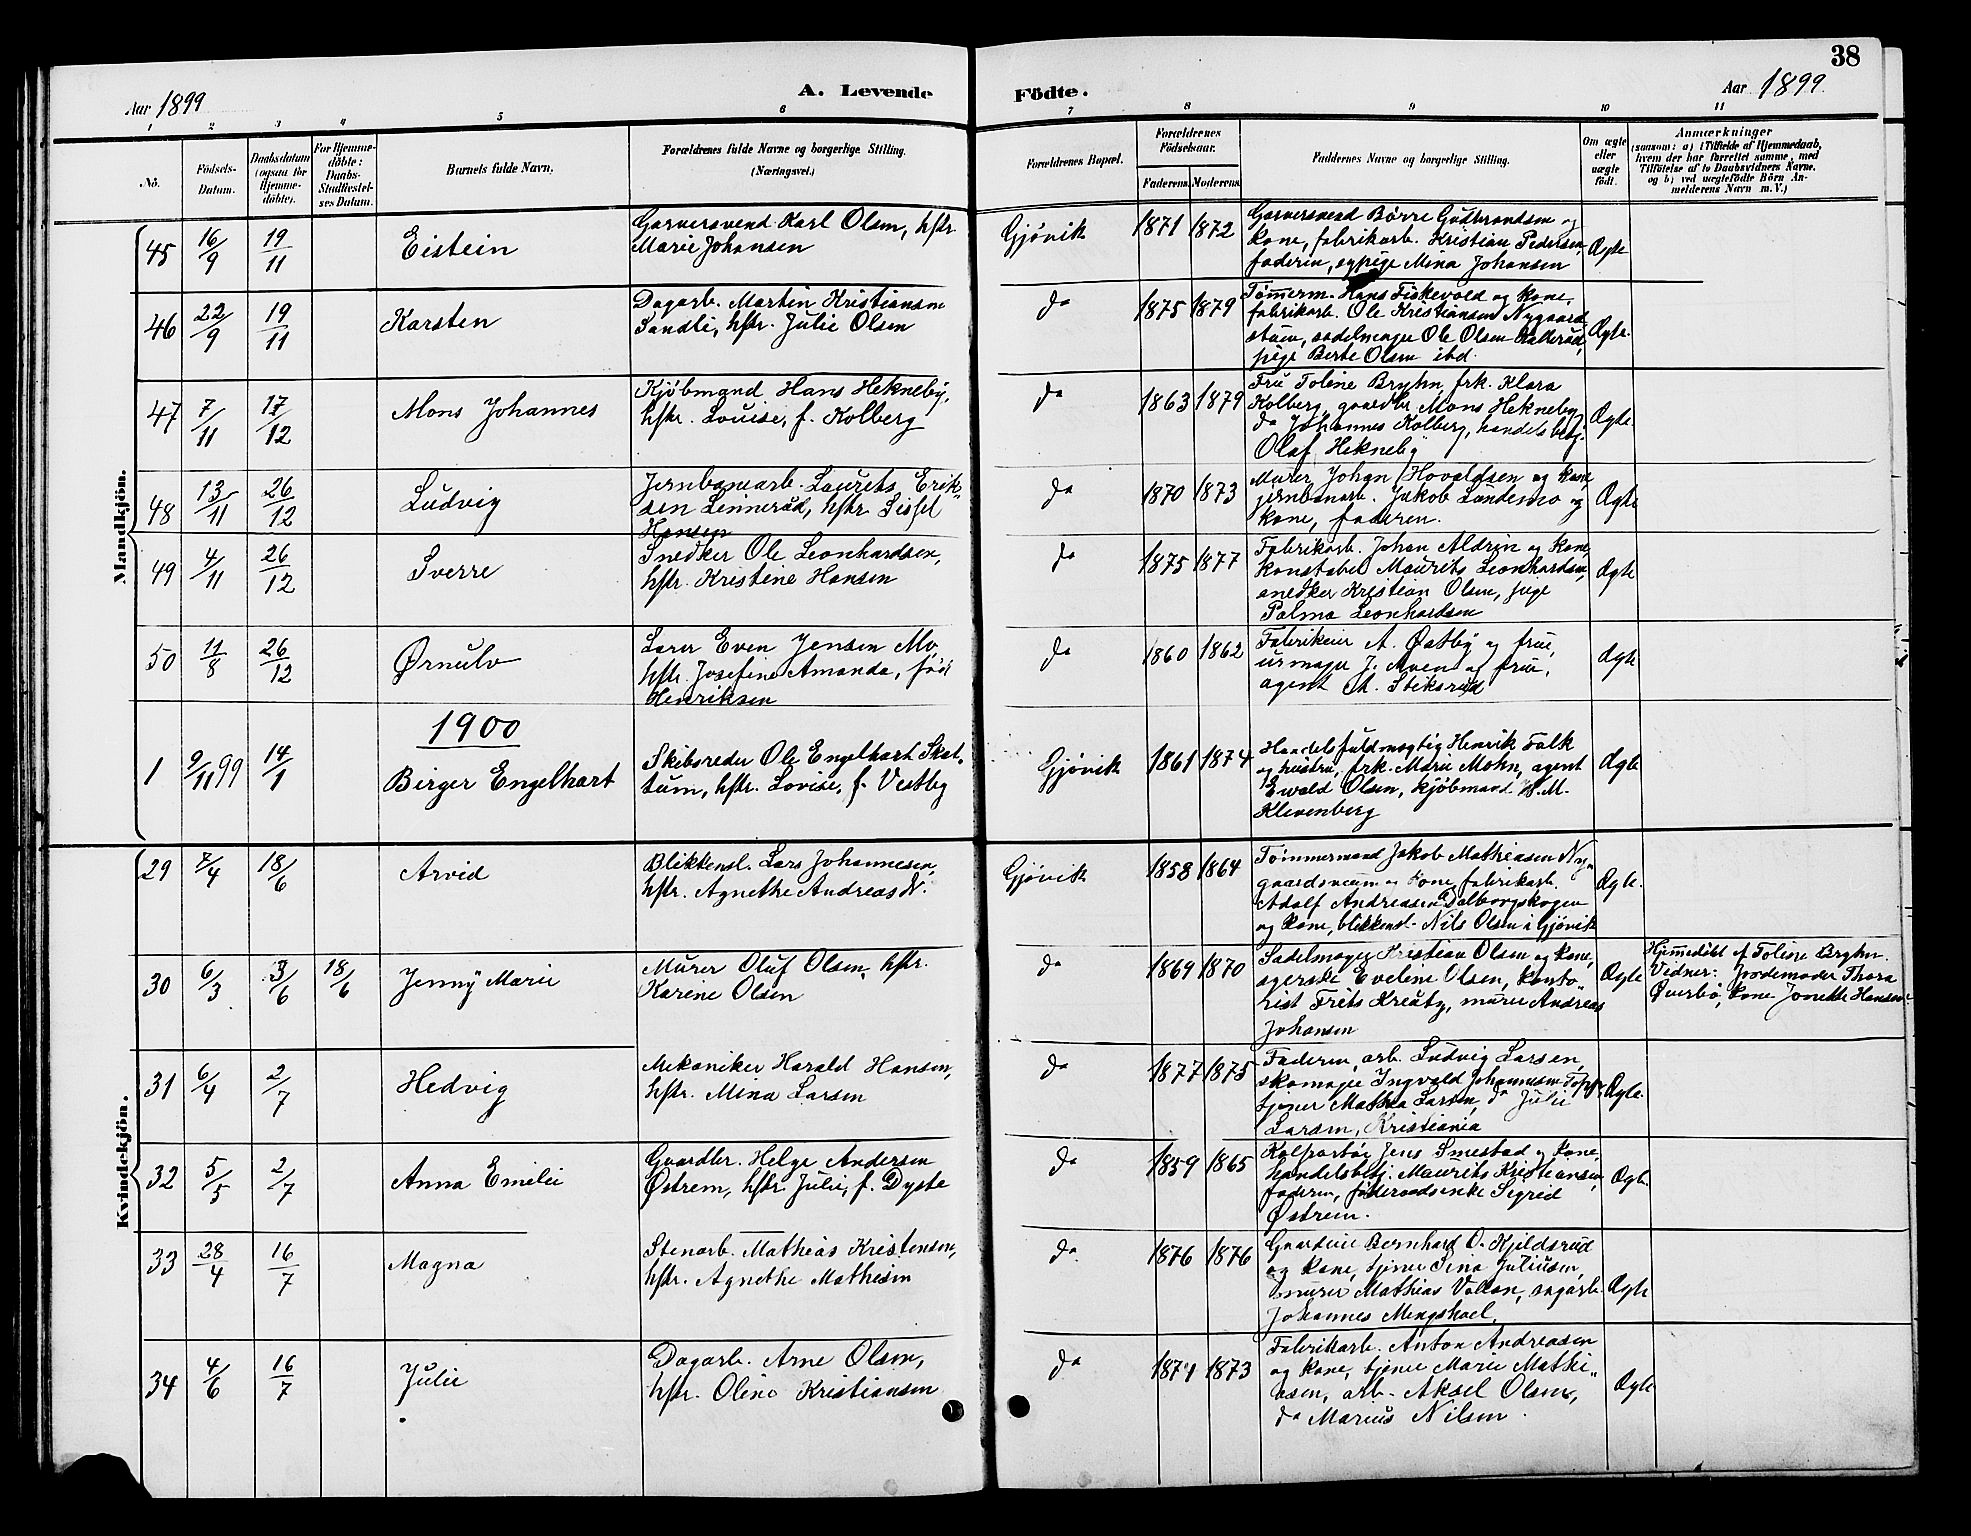 38
Aar 1899
A. Levende
Födte.
Aar 1899.
1 2 3 4 5 6 7 8 9 10 11
No.
Födsels-
Datum.
Daabsdatum
(ogsaa for
Hjemme-
döbte).
For Hjemme-
döbte:
Daabs-
Stadfæstel-
ses Datum.
Barnets fulde Navn.
Forældrenes fulde Navne og borgerlige Stilling.
(Næringsvei.)
Forældrenes Bopæl.
Forældrenes
Födselsaar.
Faderens. Moderens.
Faddernes Navne og borgerlige Stilling.
Om ægte
eller
uægte
födt.
Anmærkninger
(saasom: a) i Tilfælde af Hjemmedaab,
hvem der har forrettet samme, med
Tilföielse af to Daabsvidners Navne,
og b) ved uægtefödte Börn An-
melderens Navn m. V.)
Mandkjön.
45 16/9 19/11 Eistein
Garversvend Karl Olsen, hstr
Marie Johansen
Gjövik 1871 1872
Garversvend Börre Gudbrandsen og
kone, fabrikarb. Kristian Pedersen,
faderen, sypige Mina Johansen
Ægte
46 22/9 19/11 Karsten
Dagarb. Martin Kristiansen
Sandli, hstr. Julie Olsen
do 1875 1879
Tömmerm. Hans Fiskevold og kone,
fabrikarb. Ole Kristiansen Nygaard
stuen, sadelmager Ole Olsen
pige Berte Olsen ibd.
Ægte.
47 7/11 17/12 Mons Johannes
Kjöbmand Hans Hekneby,
hstr. Louise, f. Kolberg
do 1863 1879
Fru Toline Bryhn, frk. Klara
Kolberg, gaardbr. Mons Hekneby,
do Johannes Kolberg, handelsbetj.
Olaf Hekneby
Ægte.
48 13/11 26/12 Ludvig
Jernbanearb. Laurits Erik-
sen Linnerud, hstr. Sissel
Hansen
do 1870 1873
Murer Johan Hovaldsen og kone
jernbanarb. Jakob Sundemo og
kone, faderen.
Ægte
49 4/11 26/12 Sverre
Snedker Ole Leonhardsen,
hstr. Kristine Hansen
do 1875 1877
Fabrikarb. Johan Aldrin og kone
konstabel Maurits Leonhardsen,
snedker Kristian Olsen, pige
Palma Leonhardsen
Ægte
50 11/8 26/12 Ørnulv
Lærer Even Jensen Mo,
hstr. Josefine Amanda, föd
Henriksen
do 1860 1862
Fabrikeier A. Østby og frue,
urmager J. Moen og frue,
agent Stiksrud
Ægte
1900
1 9/11 99 14/1 Birger Engelhart
Skibsreder Ole Engelhart Skat-
tum, hstr. Lovise, f. Vestby
Gjövik 1861 1874
Handelsfuldmægtig Henrik Falk
og hustru, frk. Marie Mohn, agent
Ewald Olsen, kjöbmand H. M.
Klevenberg
Ægte
Kvindekjön.
29 7/4 18/6 Arvid
Blikkensl. Lars Johannesen,
hstr. Agnethe Andreas d.
Gjövik 1858 1864
Tömmermand Jakob Mathiasen Ny-
gaardsveum og kone, fabrikarb.
Adolf Andreasen Dalborgskogen
og kone, blikkensl. Nils Olsen i Gjövik
Ægte.
30 6/3 3/6 18/6 Jenny Marie
Murer Oluf Olsen, hstr.
Karine Olsen
do 1869 1870
Sadelmager Kristian Olsen og kone,
sygerske Eveline Olsen, konto-
rist Frits murer Andreas
Johansen
Ægte
Hjemmedöbt af Toline Bryhn.
Vidner: jordemoder Thora
Øverbö, kone Jonette Hansen
31 6/4 2/7 Hedvig
Mekaniker Harald Hansen,
hstr. Mina Larsen
do 1877 1875
Faderen, arb. Ludvig Larsen,
skomager Ingvald Johannesen
tjener Mathea Larsen, do Julie
Larsen, Kristiania
Ægte.
32 5/5 2/7 Anna Emilie
Gaardbr. Helge Andersen
Østrem, hstr Julie, f. Dyste
do 1859 1865
Kolportör Jens Smestad og kone,
handelsbetj. Maurits Kristiansen,
faderen, föderaadsenke Sigrid
Østrem.
Ægte
33 28/4 16/7 Magna
Stenarb. Mathias Kristensen,
hstr. Agnethe Mathisen
do. 1876 1876
Gaardeier Bernhard O. Kjeldsrud
og kone, tjener Sina Juliusen,
murer Mathias sagarb.
Johannes Mengshoel.
Ægte
34 4/6 16/7 Julie
Dagarb. Arne Olsen,
hstr. Oline Kristiansen
do 1871 1873
Fabrikarb. Anton Andreasen
og kone, tjener Marie Mathi-
asen, arb. Aksel Olsen,
do Marius Nilsen.
Ægte